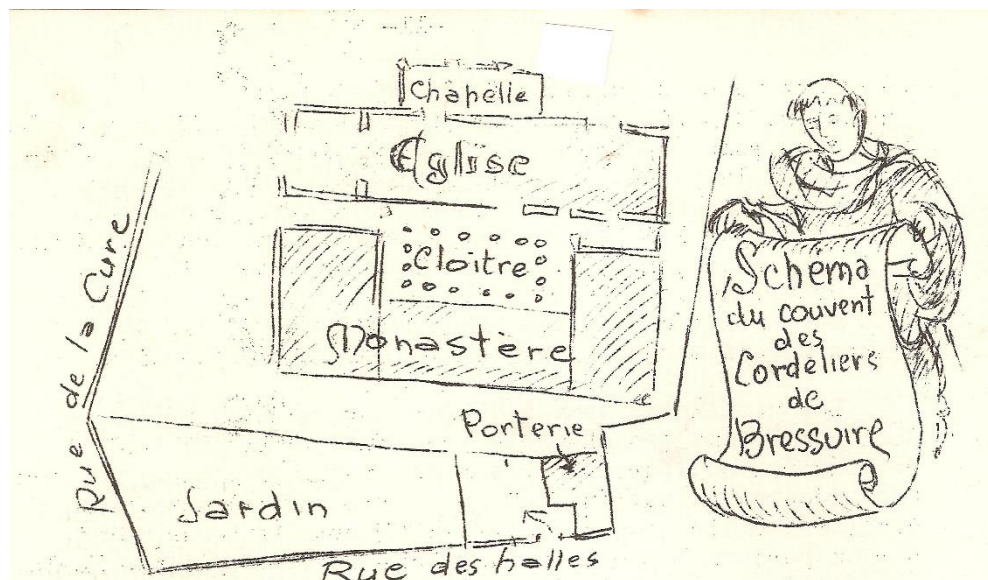 Chapelle
Eglise
Cloitre
Monastère
Porterie
Jardin
Rue de la Cure
Rue des halles
Schéma
du couvent
des
Cordeliers
de
Bressuire